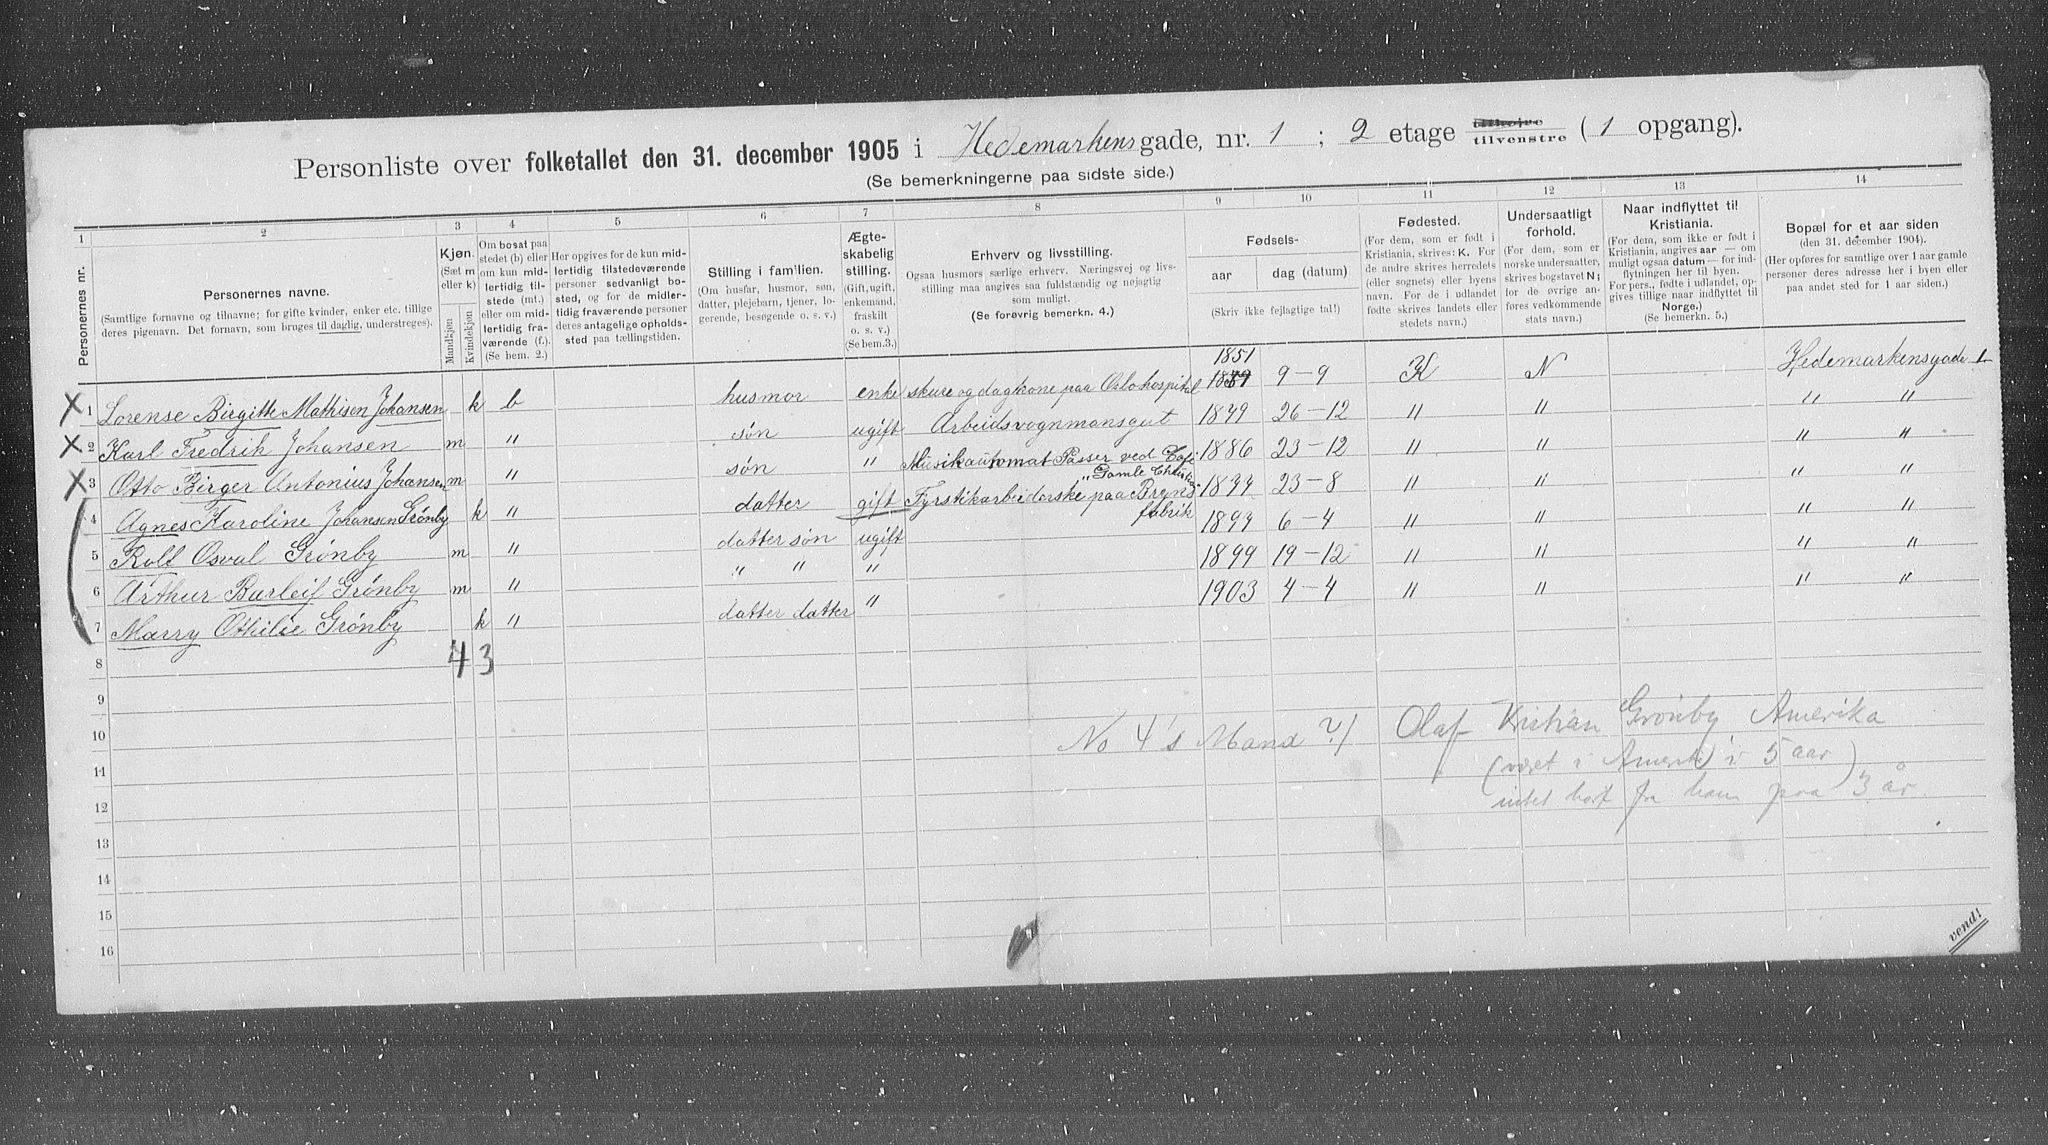 Personliste over folketallet den 31. december 1905 i Hedemarkensgade, nr. 1 ; 2 etage tilhøjre tilvenstre (1 opgang).
(Se bemerkningerne paa sidste side.)
1 2 3 4 5 6 7 8 9 10 11 12 13 14
Personernes nr.
Personernes navne.
(Samtlige fornavne og tilnavne; for gifte kvinder, enker etc. tillige
deres pigenavn. Det fornavn, som bruges til daglig, understreges).
Kjøn.
(Sæt m
eller k)
Mandkjøn
Kvindekjøn
Om bosat paa
stedet (b) eller
om kun mid-
lertidig til-
stede (mt.)
eller om mid-
lertidig fra-
værende (f.).
(Se bem. 2.)
Her opgives for de kun mid-
lertidig tilstedeværende
personer sedvanlig bo-
sted, og for de midler-
tidig fraværende personer
deres antagelige opholds-
sted paa tællingstiden.
Stilling i familien.
(Om husfar, husmor, søn,
datter, plejebarn, tjener, lo-
gerende, besøgende o. s. v.)
Ægte-
skabelig
stilling.
(Gift, ugift,
enkemand,
fraskilt
o. s. v.)
(Se bem.3.)
Erhverv og livsstilling.
Ogsaa husmors særlige erhverv. Næringsvej og livs-
stilling maa angives saa fuldstændig og nøjagtig
som muligt.
(Se forøvrig bemerkn. 4.)
Fødsels-
aar dag (datum)
(Skriv ikke fejlagtige tal!)
Fødested.
(For dem, som er født i
Kristiania, skrives: K. For
de andre skrives herredets
(eller sognets) eller byens
navn. For de i udlandet
fødte skrives landets eller
stedets navn.)
Undersaatligt
forhold.
(For dem, som er
norske undersaatter,
skrives bogstavet N;
for de øvrige an-
føres vedkommende
stats navn.)
Naar indflyttet til
Kristiania.
(For dem, som ikke er født i
Kristiania, angives aar — om
muligt ogsaa datum — for ind-
flytningen her til byen.
For pers., fødte i udlandet, op-
gives tillige naar indflyttet til
Norge.)
(Se bemerkn. 5.)
Bopæl for et aar siden
(den 31. december 1904).
(Her opføres for samtlige over 1 aar gamle
personer deres adresse her i byen eller
paa andet sted for 1 aar siden.)
X 1 Lorense Birgitte Mathisen Johansen k b husmor enke skure og dagkone paa Oslo hospital 1851 9-9 K N Hedemarkensgade 1
X 2 Karl Fredrik Johansen m " søn ugift Arbeidsvognmansgut 1879 26-12 " " " "
X 3 Otto Birger Antonius Johansen m " søn " Musikautomat Passer ved Café „Gamle Christia- 1886 23-12 " " " "
4 Agnes Karoline Johansen Grønby k " datter gift Fyrstikarbeiderske paa Bryns fabrik 1877 23-8 " " " "
5 Rolf Osval Grønby m " datter søn ugift 1897 6-4 " " " "
6 Arthur Barleif Grønby m " " " " 1899 19-12 " " " "
7 Marry Othilie Grønby k " datter datter " 1903 4-4 " " " "
8 4 3
9
10 No 4's Mand ?/ Olaf Kristian Grønby Amerika
11 (været i Amerik) i 5 aar
12 intet hørt fra ham paa 3 år.
13
14
15
16
vend!